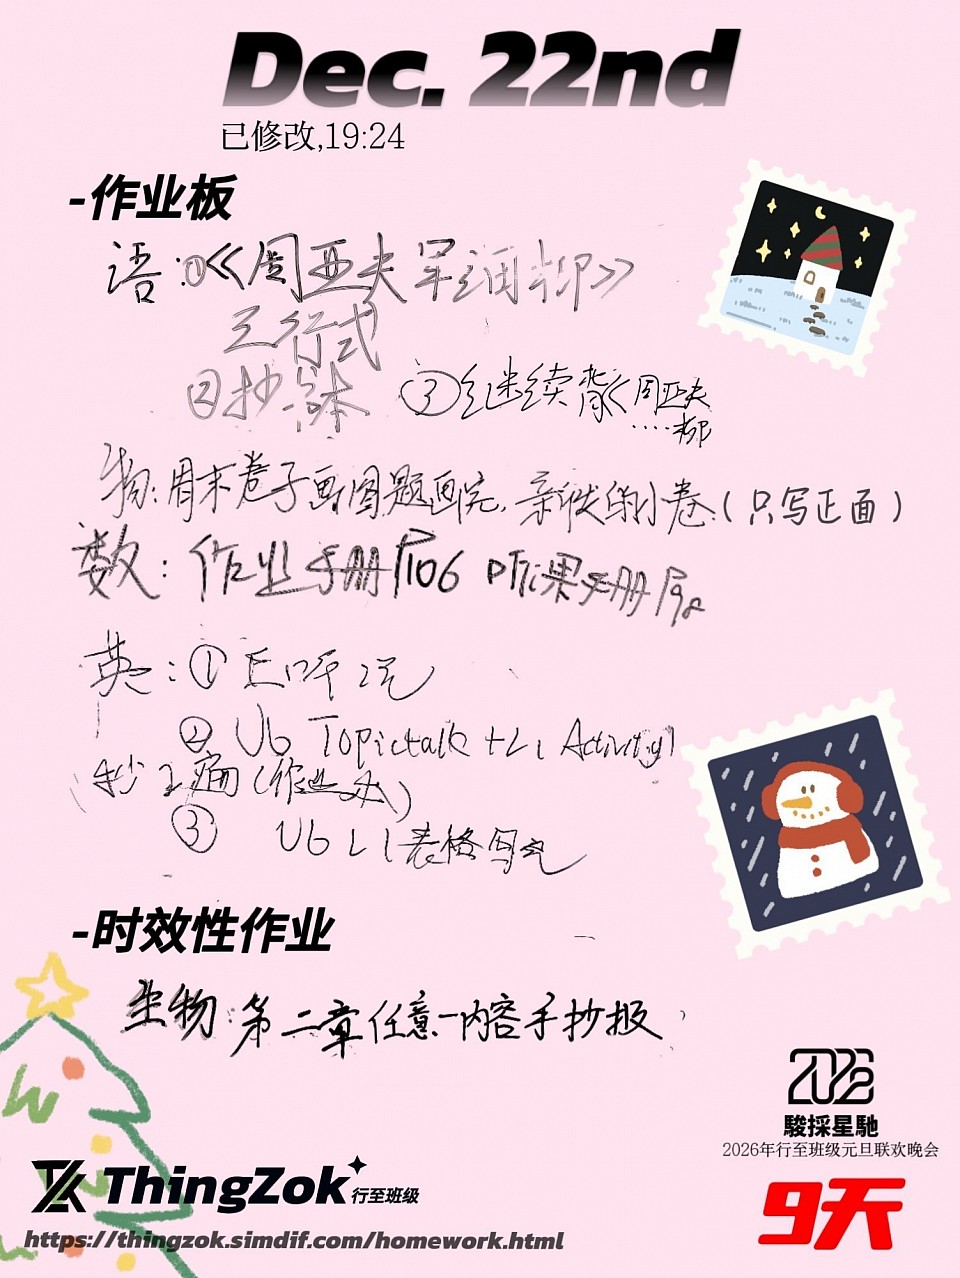 Dec. 22nd
已修改,19:24
-作业板
语:①《周亚夫军细柳》
三行式
②抄 ③继续背《周亚夫
……柳
物:周末卷子画图题画完, 亲佚的小卷(只写正面)
数:作业手册P106 听课手册P98
英:①E听说
②U6 Topictalk +L1 Activity1
抄2遍(作业本)
③ U6 L1表格写完
-时效性作业
生物:第二章任意一内容手抄报
2026
駿採星馳
2026年行至班级元旦联欢晚会
ThingZok 行至班级
9天
https://thingzok.simdif.com/homework.html